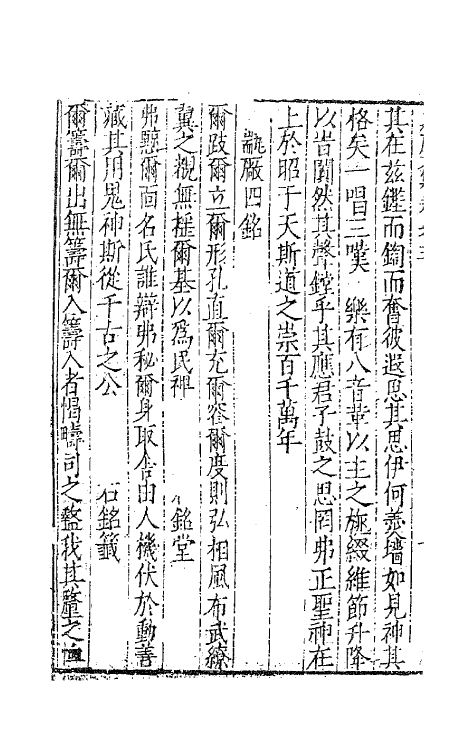 其在玆鏗而鍧而奮彼遐思其思伊何羮墻如見神其
格矣一唱三嘆　樂有八音革以主之旄綴維節升降
以告闐然其聲鏜乎其應君子鼓之思罔弗正聖神在
上於昭于天斯道之崇百千萬年
廠四銘
爾跂爾立爾形孔直爾充爾容爾度則弘相風布武繚
冀之觀無極爾基以爲民神　銘堂
弗懸爾面名氏誰辯弗秘爾身取舍由人機伏於動善
藏其用鬼神斯從千古之公　右銘籤
爾籌爾出無籌爾入籌入者惜疇司之盭我其釐之